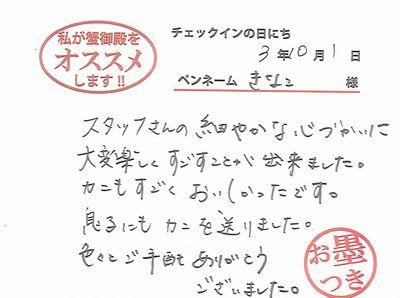 私が蟹御殿を
オススメ
します!!
チェックインの日にち
3年10月1日
ペンネーム きなこ 様
スタッフさんの細やかな心づかいに
大変楽しくすごすことが出来ました。
カニもすごくおいしかったです。
息子にもカニを送りました。
色々とご手配ありがとう
ございました。
お墨
つき